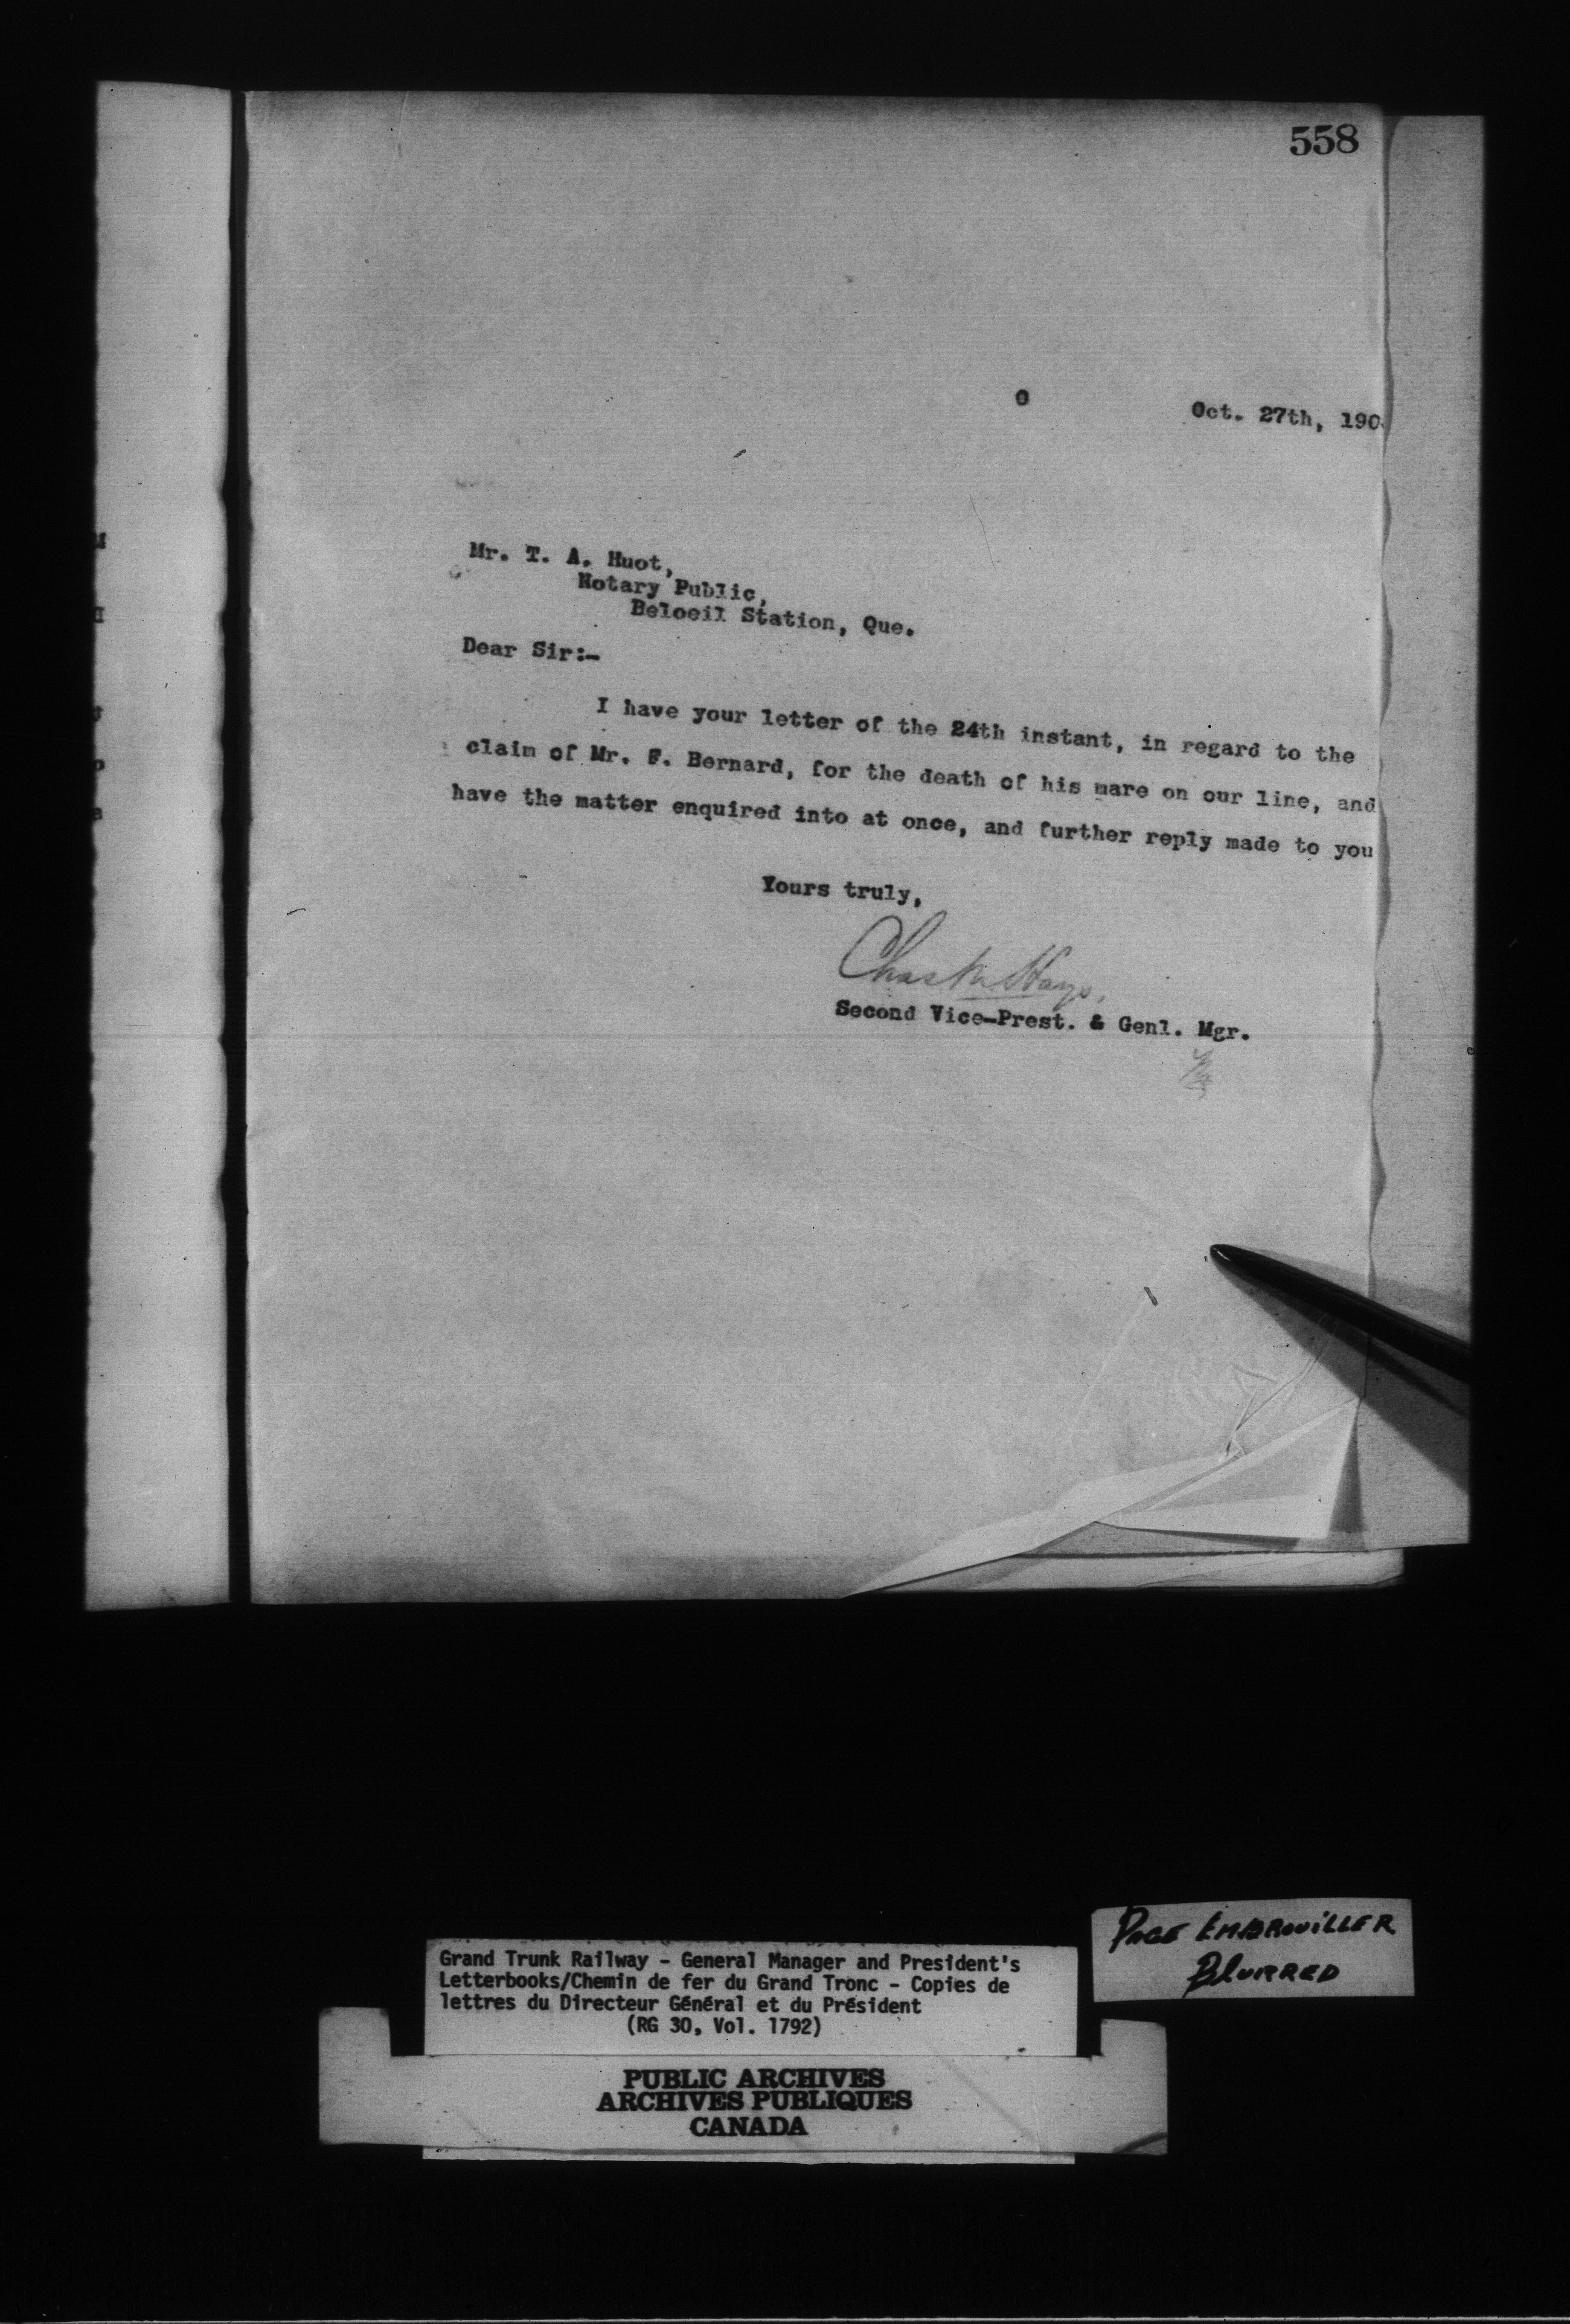 558
O
Oct. 27th, 190
Mr. T. A. Huot,
Notary Public,
Beloeil Station, Que.
Dear Sir:-
I have your letter of the 24th instant, in regard to the
claim of Mr. F. Bernard, for the death of his mare on our line, and
have the matter enquired into at once, and further reply made to you
Yours truly,
Chas M Hays,
Second Vice-Prest. & Genl. Mgr.
PAGE EMBROUILLER
BLURRED
Grand Trunk Railway - General Manager and President's
Letterbooks/Chemin de fer du Grand Tronc - Copies de
lettres du Directeur Général et du Président
(RG 30, Vol. 1792)
PUBLIC ARCHIVES
ARCHIVES PUBLIQUES
CANADA